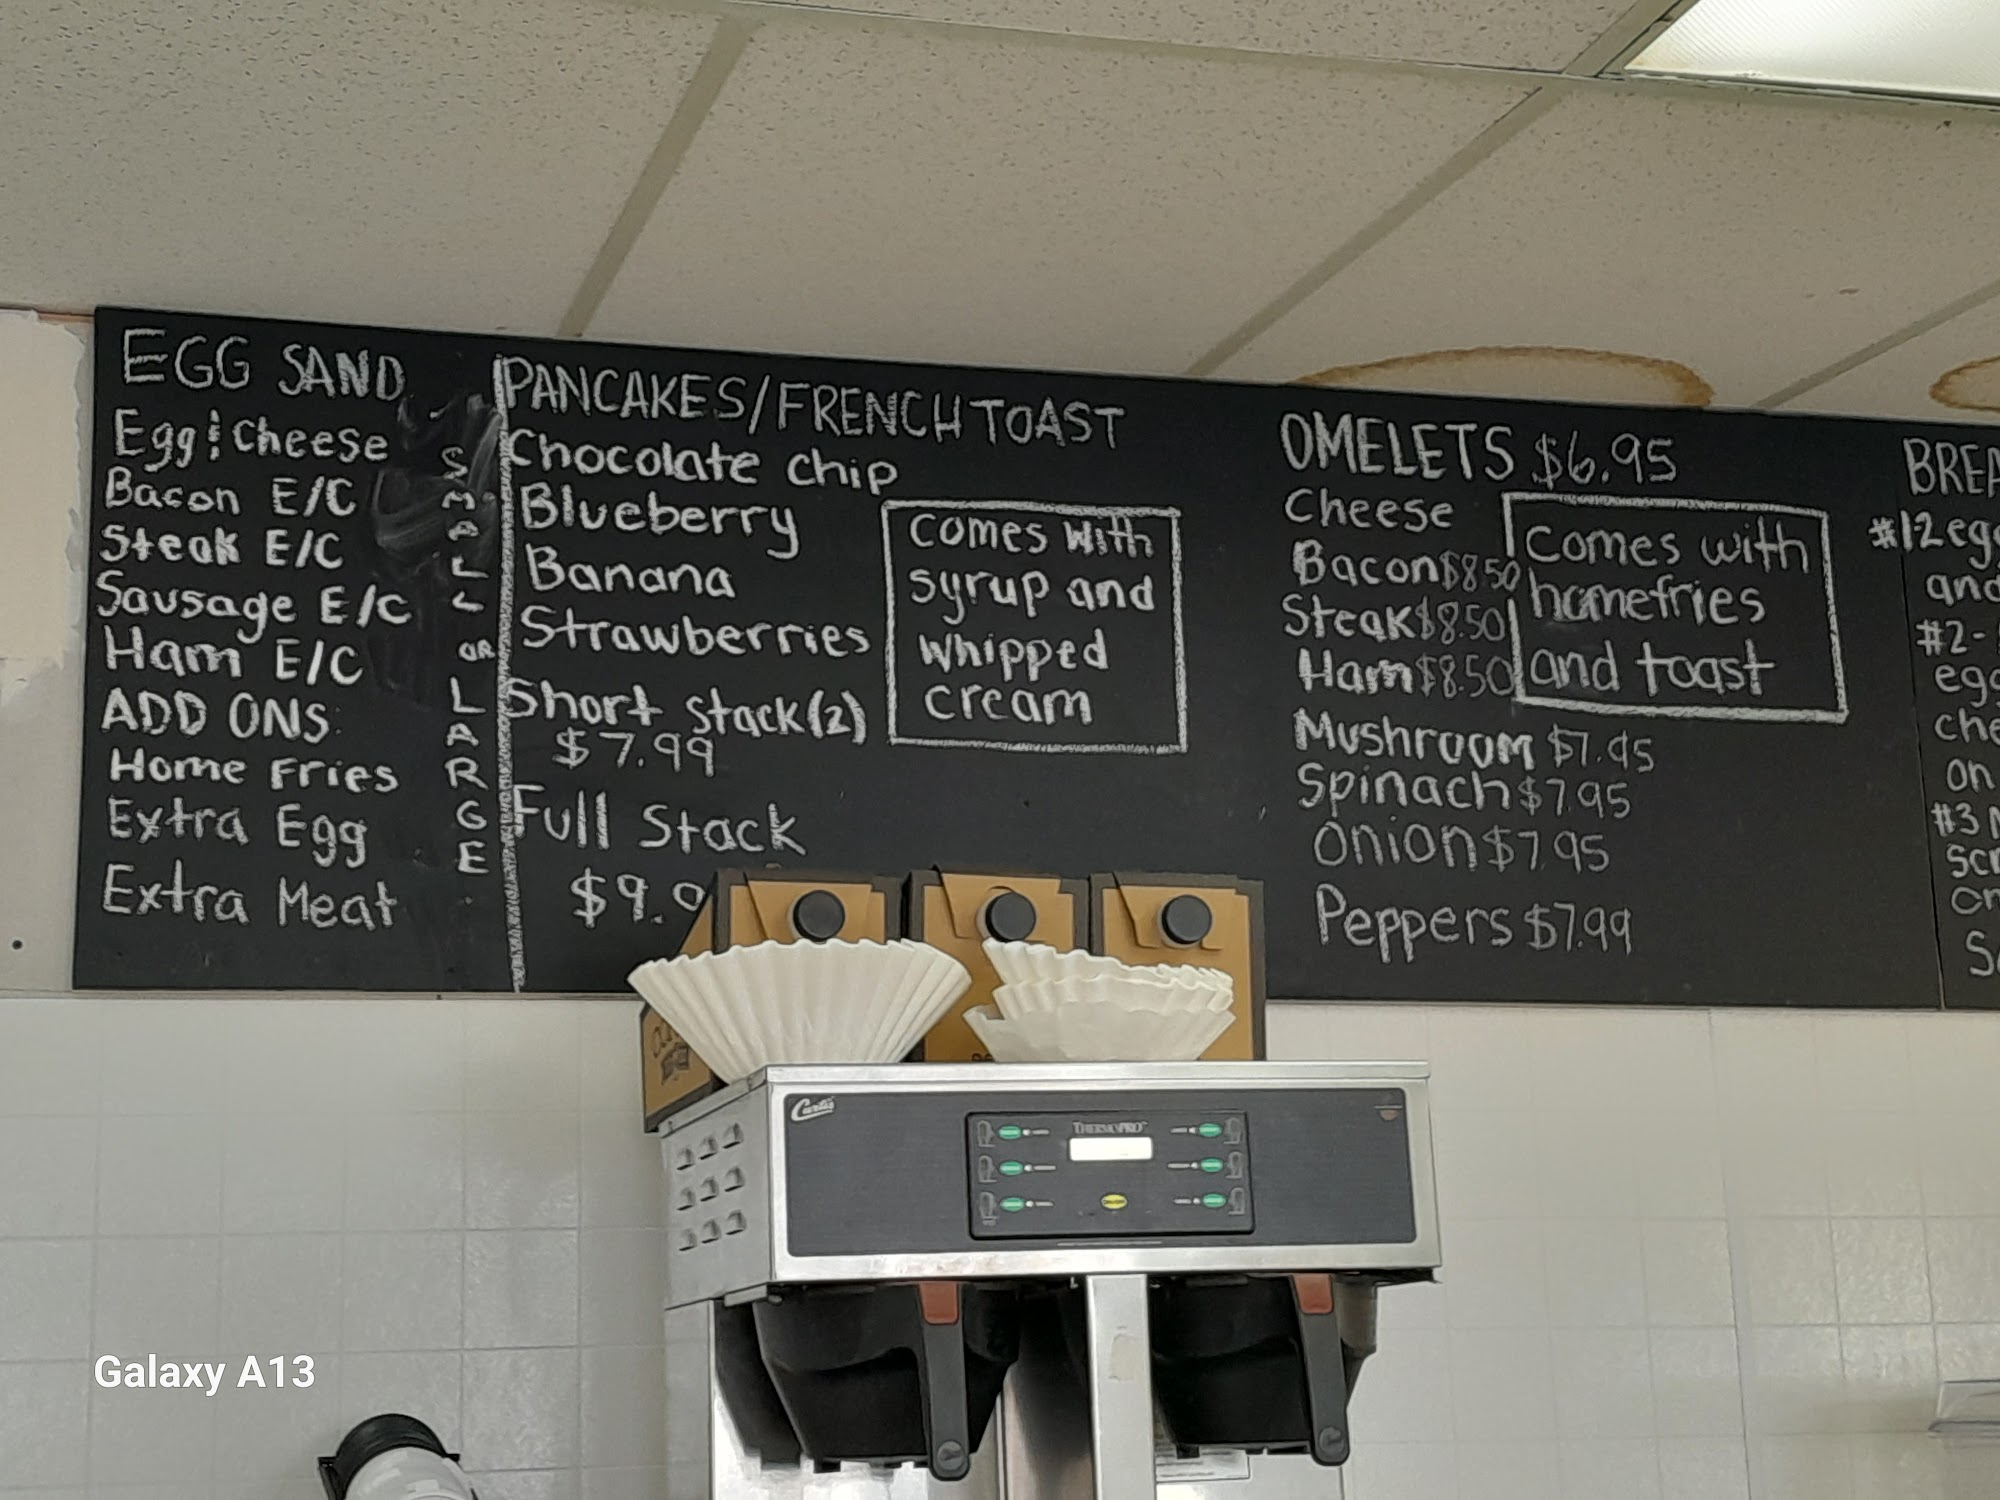 EGG SAND
Egg & Cheese
Bacon E/C
Steak E/C
Sausage E/C
Ham E/C
ADD ONS:
Home Fries
Extra Egg
Extra Meat
SMALL OR LARGE
PANCAKES/FRENCH TOAST
Chocolate chip
Blueberry
Banana
Strawberries
Short stack(2)
$7.99
Full Stack
$9.9
comes with
syrup and
whipped
cream
OMELETS $6.95
Cheese
Bacon $8.50
Steak $8.50
Ham $8.50
Mushroom $7.95
Spinach $7.95
Onion $7.95
Peppers $7.99
comes with
homefries
and toast
BREA
#1 2 egg
and
#2-
egg
che
on
#3
Scr
on
Curtis
THERMOPRO
Galaxy A13